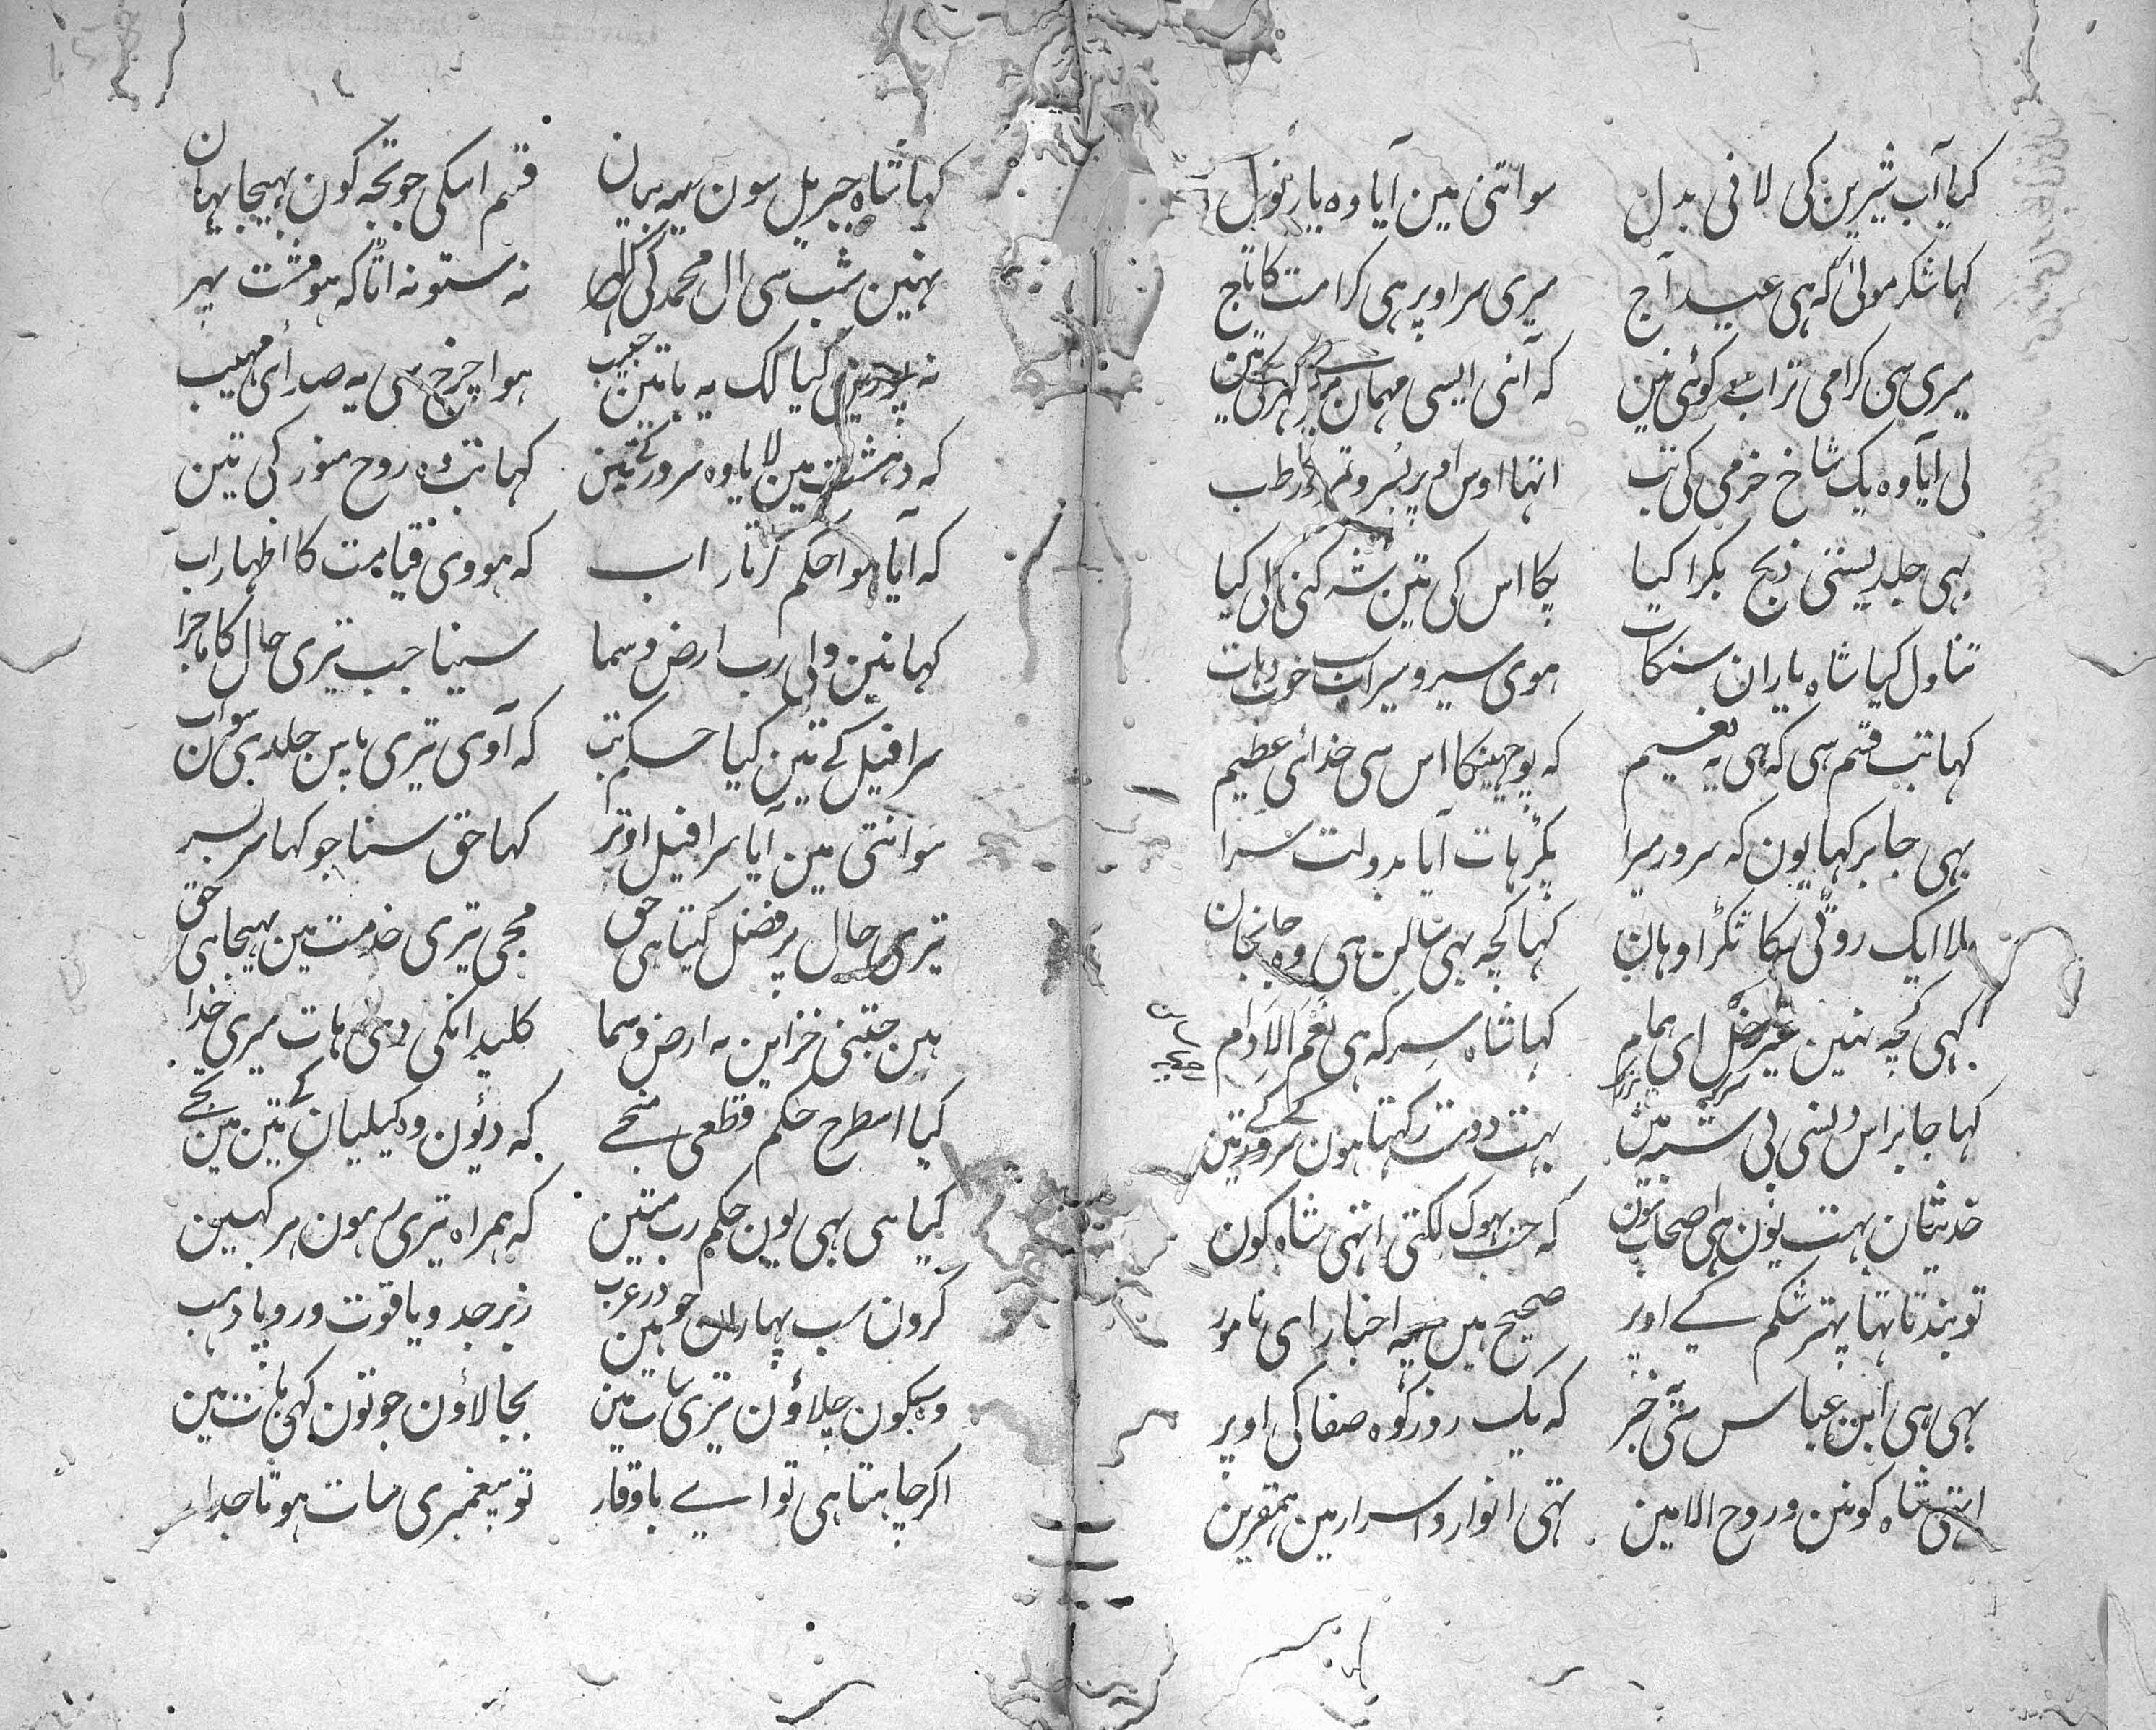 کیا آب شیرین کی لافی بدل سو اتنی مین آیا وہ یار نول
کہا شکر مولیٰ کہ ہی عید آج میری سر اوپر ہی کرامت کا تاج
میری سی کرامی تر اب کوئی نین کہ آئی ایسی مہمان
لی آیا وہ یک شاخ خرمی کی تب اتہا اوس اوپر بسر و تمر و رطب
بہی جلد یستی ذبح بکرا کیا پکا اس کی تئین شہ کنی لا کیا
تناول کیا شاہ یاران سنکات ہوی سیر و سیراب خوب دہات
کہا تب قسم سی کہ ہی یہ نعیم کہ پوچھینکا اس سی خدائی عظیم
بہی جابر کہا یون کہ سرور میرا پکڑ ہات آیا بدولت سرا
ملا ایک روٹی کا ٹکڑا وہان کہا کچہ بہی سالن ہی وہ جانجان
کہی کچہ نہین غیر خل ای ہمام کہا شاہ سرکہ ہی نعم الادام
کہا جابر اس وستی بی شبہ مین بہت دوت رکہتا ہون سرکے کے تئین
حدیثان بہت یون ہی اصحاب سون کہ جب بہوک لکتی اتہی شاہ کون
تو بندتا تہا پتہر شکم کے اوپر صحیح ہین یہ اخبار ای نامور
بہی ہی ابن عباس ستی خبر کہ یک روز کوہ صفا کی اوپر
اتہی شاہ کونین و روح الامین تہی انوار و اسرار مین ہمقرین
کہا شاہ جبریل سون یہہ بیان قسم اسکی جو تجہ کون بہیجا یہان
نہین شب سی ال محمد کی کہر نہ ستو نہ اتا کہ ہو مشت بہر
نہ کیا لک یہ باتین حبیب ہوا چرخ سی یہ صدائی مہیب
کہ دہشت مین لایا وہ سرور کے تئین کہا تب وہ روح منور کی تئین
کہ آیا ہوا حکم کرتار اب کہ ہووی قیامت کا اظہار اب
کہا نین ولی رب ارض و سما سینا جب تیری حال کا ماجرا
سرافیل کے تئین کیا حکم تب کہ آوی تیری پاس جلدی سون اب
سو اتنی مین آیا سرافیل اوتر کہا حق سنا جو کہا سر بسر
تیری حال پر فضل کیتا ہی حق مجی تیری خدمت مین بہیجا ہی حق
ہین جتنی خزاین بہ ارض و سما کلید انکی دی ہات میری خدا
کیا اسطرح حکم قطعی منجے کہ دیون وہ کیلیان کے تئین مین تجے
کیا ہی بہی یون حکم رب متین کہ ہمراہ تیری ہون ہر کہین
کرون سب پہاران جو در عرب ہین زبرجد و یاقوت و روپا و ذہب
وسکون چلاؤن تیری سات مین بجا لاؤن جو تون کہی بات مین
اکر چاہتا ہی تو اے باوقار تو پیغمبری سات ہو تاجدار